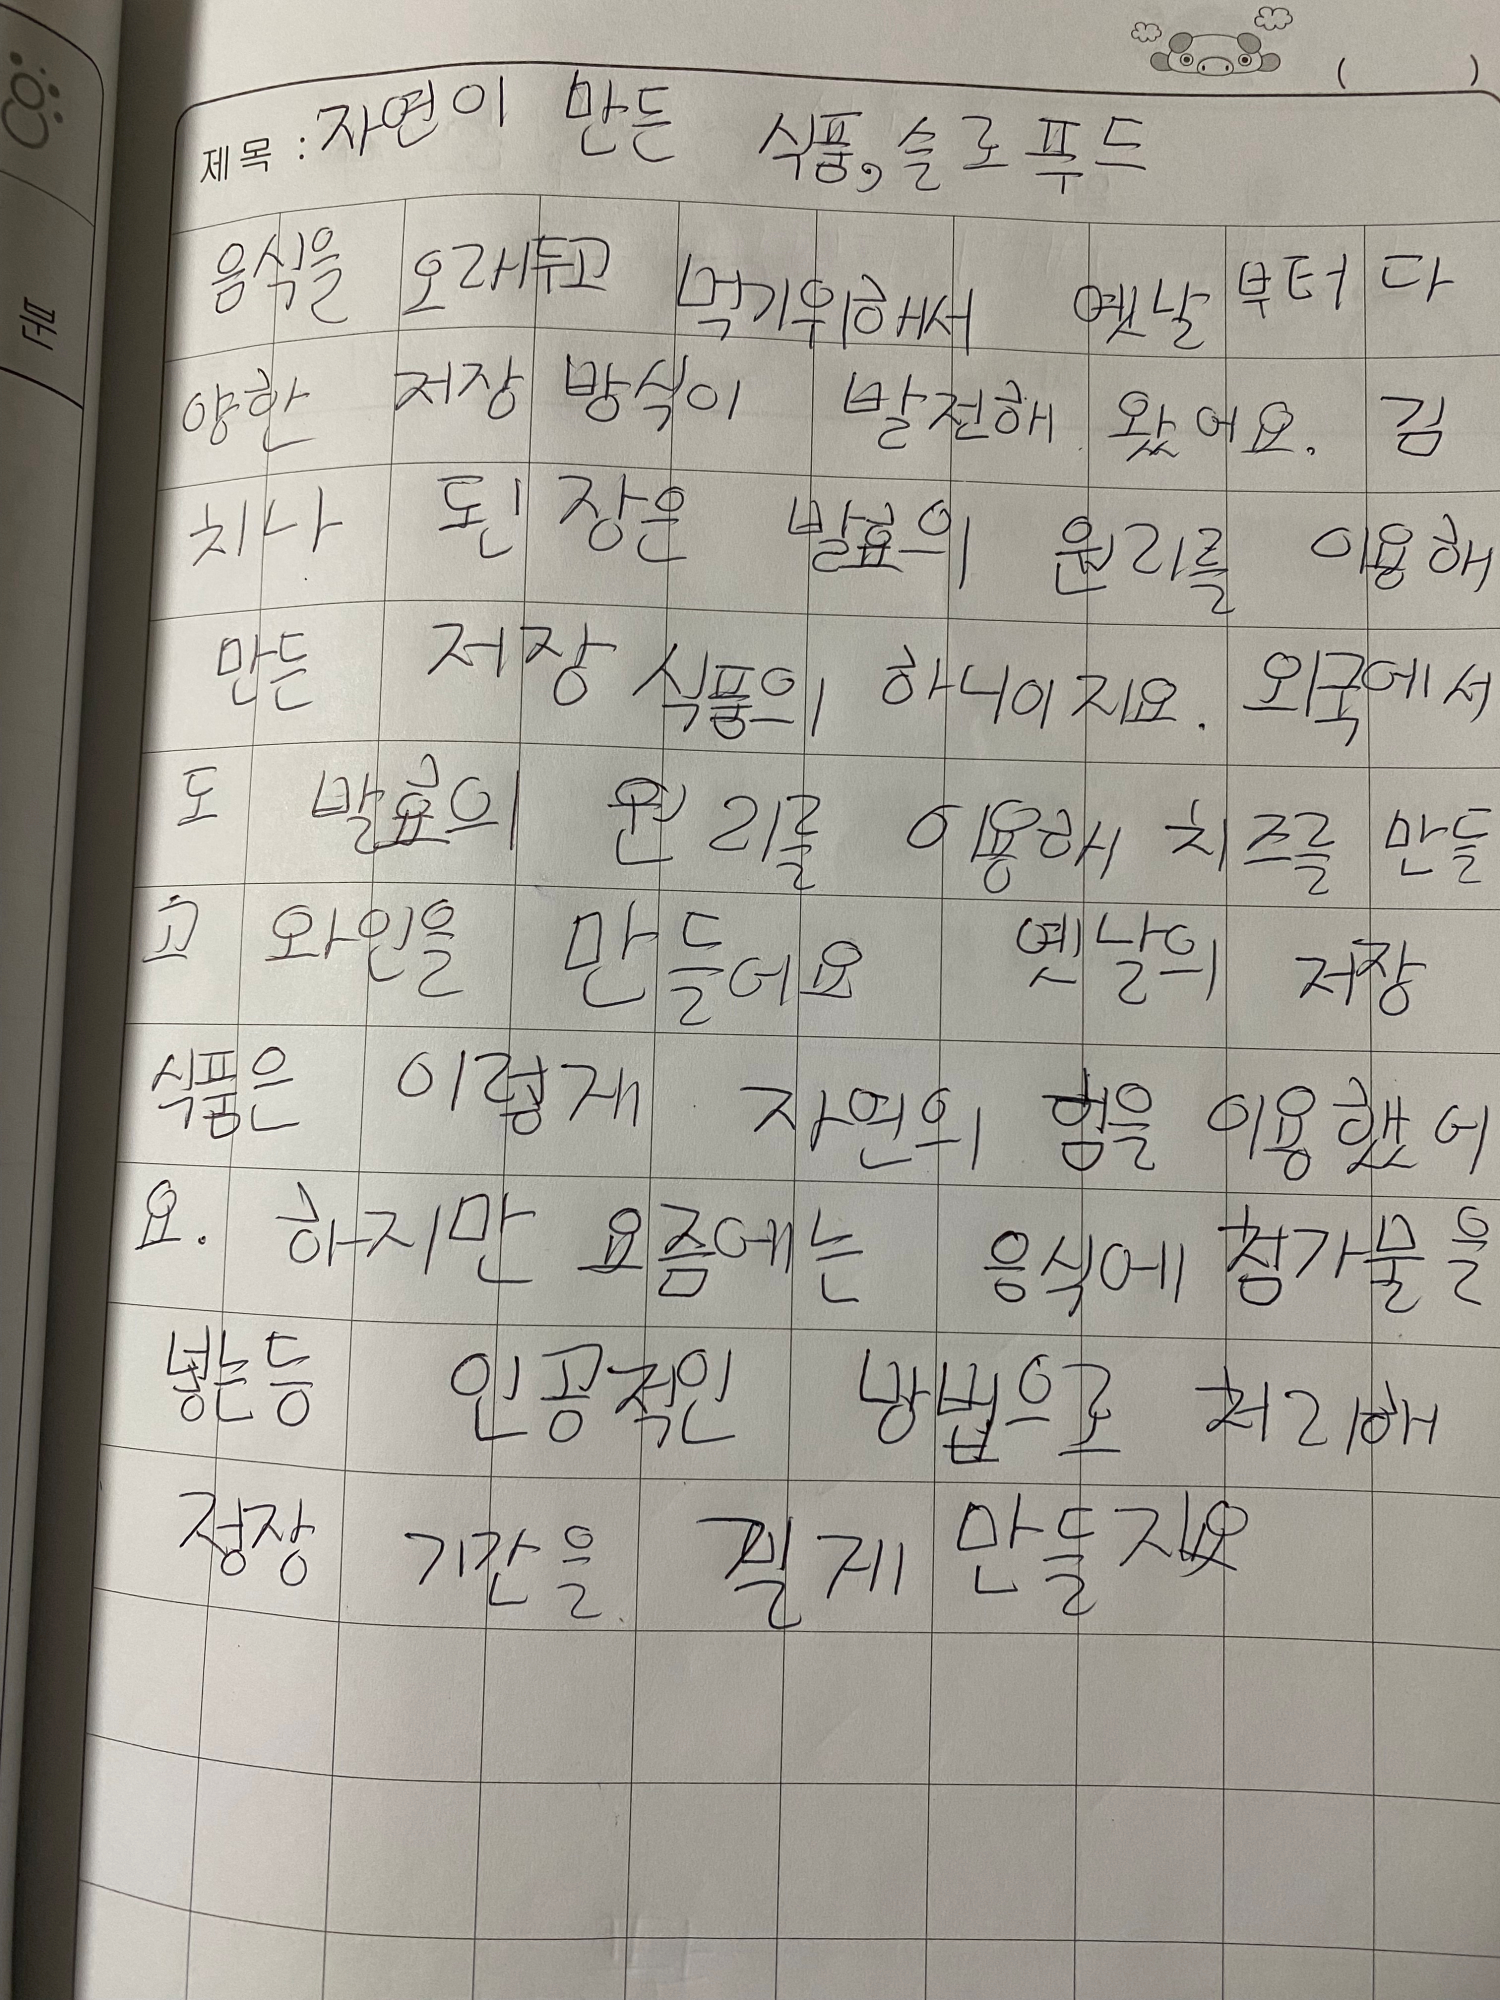 ( )
제목 : 자연이 만든 식품, 슬로푸드
음식을 오래두고 먹기위해서 옛날부터 다
양한 저장 방식이 발전해 왔어요. 김
치나 된장은 발효의 원리를 이용해
만든 저장 식품의 하나이지요. 외국에서
도 발효의 원리를 이용해 치즈를 만들
고 와인을 만들어요 옛날의 저장
식품은 이렇재 자연의 힘을 이용했어
요. 하지만 요즘에는 응식에 첨가물을
넣는등 인공적인 방법으로 처리해
정장 기간을 질게 만들지요